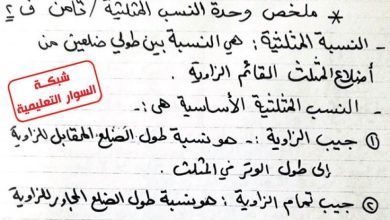 * ملخص وحدة النسب المثلثية / ثامن ف ٢
- النسبة المثلثية : هي النسبة بين طولي ضلعين من
أضلاع المثلث القائم الزاوية .
شبكة
السوار التعليمية
- النسب المثلثية الأساسية هي :-
① جيب الزاوية :- هو نسبة طول الضلع المقابل للزاوية
إلى طول الوتر في المثلث .
② جيب تمام الزاوية : هو نسبة طول الضلع المجاور للزاوية